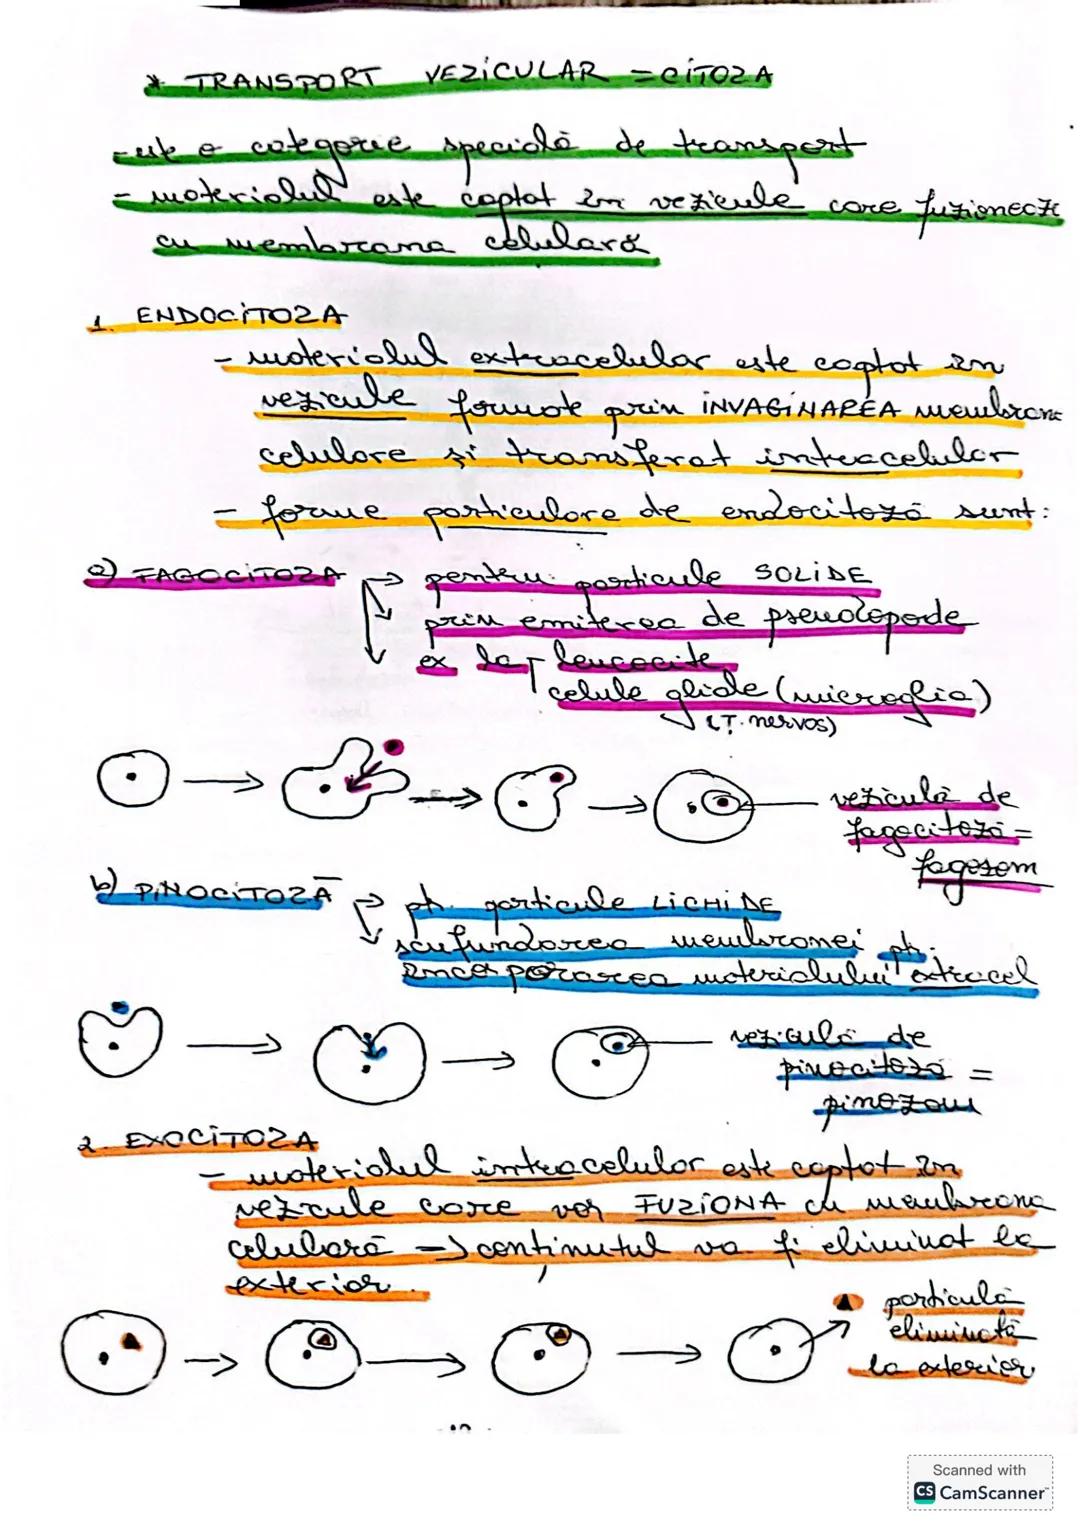 * TRANSPORT VEZICULAR = CITOZA
- este o categorie specială de transport
- materialul este captat în vezicule care fuzionează
cu membrana celulară
1. ENDOCITOZA
- materialul extracelular este captat în
vezicule formate prin INVAGINAREA membrane
celulare și transferat intracelular
- forme particulare de endocitoză sunt:
a) FAGOCITOZA → pentru particule SOLIDE
prin emiterea de pseudopode
ex la leucocite
celule gliale (microglia)
(Ț. nervos)
veziculă de
fagocitoză =
fagozom
b) PINOCITOZĂ → pt. particule LICHIDE
scufundarea membranei pt.
încorporarea materialului extracel
veziculă de
pinocitoză =
pinozom
2. EXOCITOZA
- materialul intracelular este captat în
vezicule care vor FUZIONA cu membrana
celulară → conținutul va fi eliminat la
exterior.
particulă
eliminată
la exterior
Scanned with
CS CamScanner